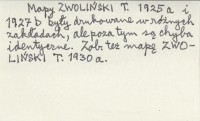 Mapy ZWOLIŃSKI T. 1925a i
1927b były drukowane w różnych
zakładach, ale poza tym są chyba
identyczne. Zob. też mapę ZWO-
LIŃSKI T. 1930a.